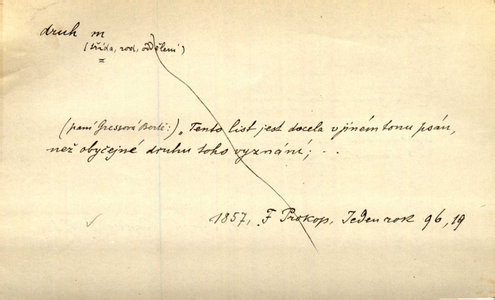 druh m
(třída, rod, oddělení)
(paní Gressová Bertě:) „Tento list jest docela v jiném tonu psán,
než obyčejné druhu toho vyznání; . .
1857, F Prokop, Jeden rok 96, 19